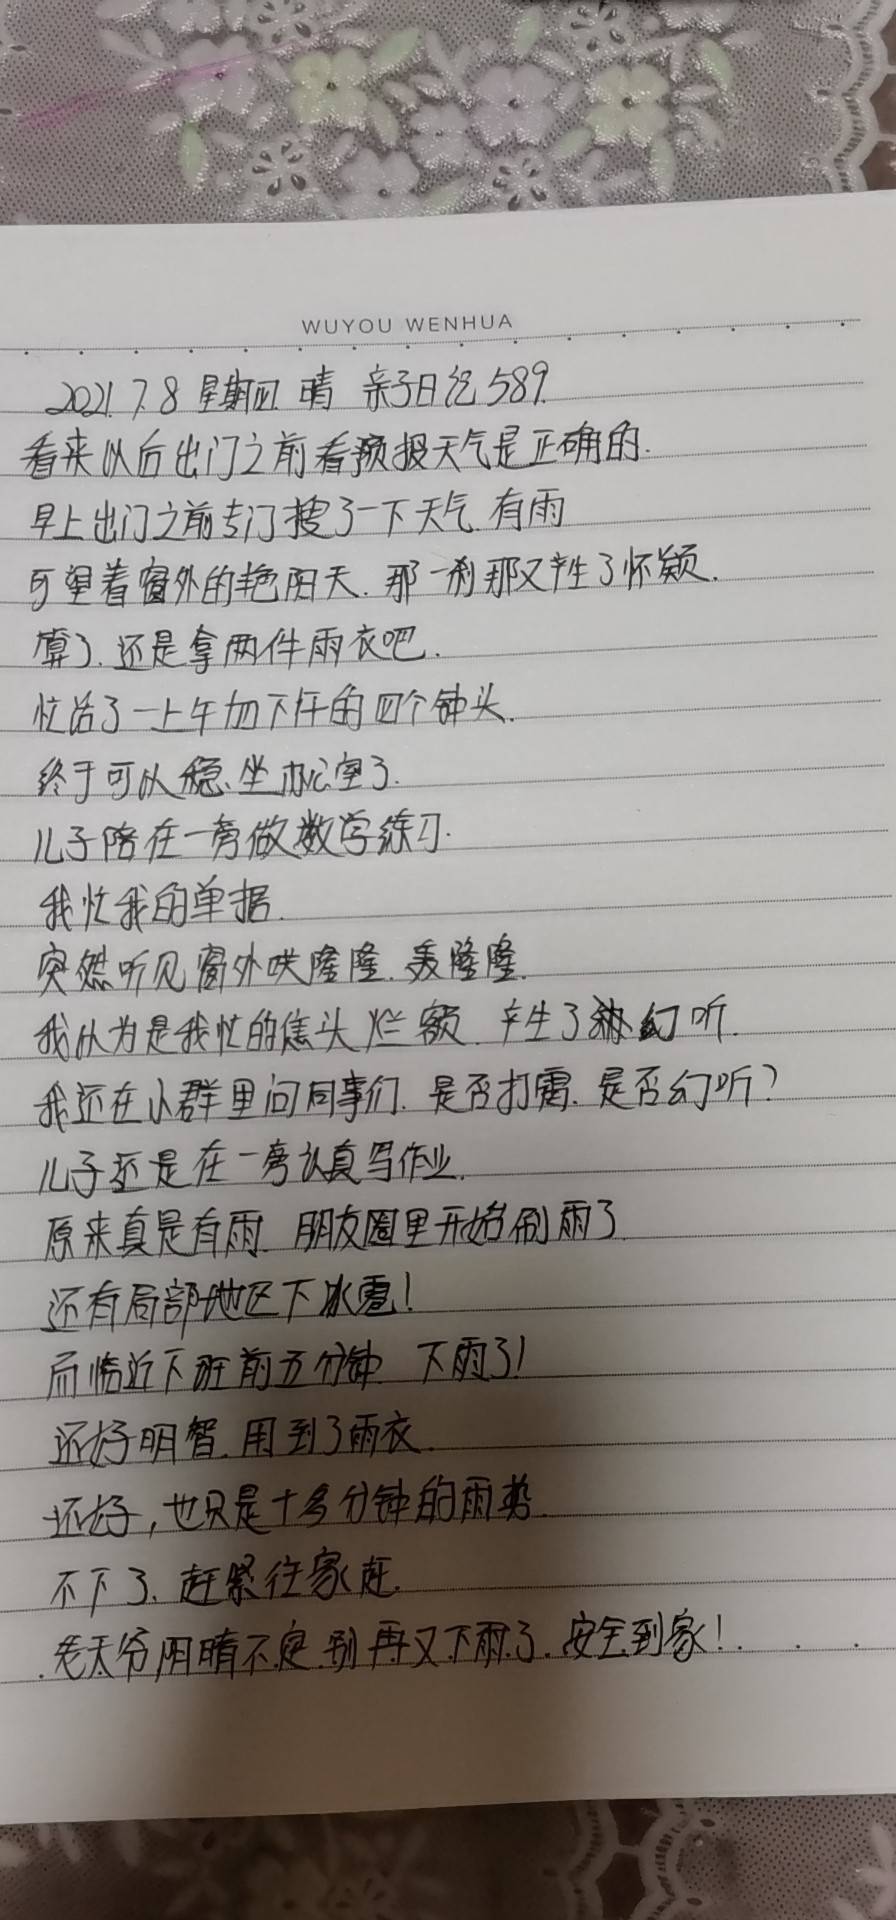 WUYOU WENHUA
2021.7.8 星期四 晴 亲子日记589.
看来以后出门之前看预报天气是正确的.
早上出门之前专门搜了一下天气.有雨
可望着窗外的艳阳天.那一刹那又产生了怀疑.
算了.还是拿两件雨衣吧.
忙活了一上午加下午的四个钟头.
终于可以稳坐办公室了.
儿子陪在一旁做数学练习.
我忙我的单据.
突然听见窗外哄隆隆.轰隆隆.
我认为是我忙的焦头烂额.产生了幻听.
我还在小群里问同事们.是否打雷.是否幻听?
儿子还是在一旁认真写作业.
原来真是有雨.朋友圈里开始刷雨了
还有局部地区下冰雹!
而临近下班前五分钟.下雨了!
还好明智.用到了雨衣.
还好,也只是十多分钟的雨势.
不下了.赶紧往家赶.
老天爷阴晴不定.别再又下雨了.安全到家!